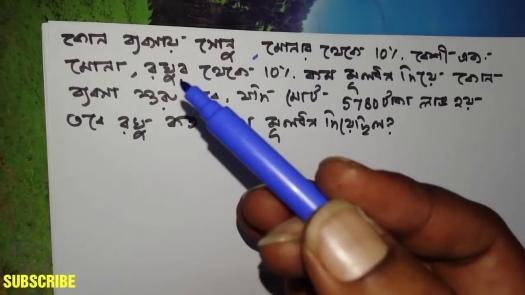 কোন ব্যবসায় সোনু, সোনার থেকে 10% বেশী এবং
সোনা, রঘুর থেকে 10% কম মূলধন দিয়ে কোন
ব্যবসা শুরু করে, যদি মোট 5780 টাকা লাভ হয়
তবে রঘু মূলধন দিয়েছিল?
SUBSCRIBE